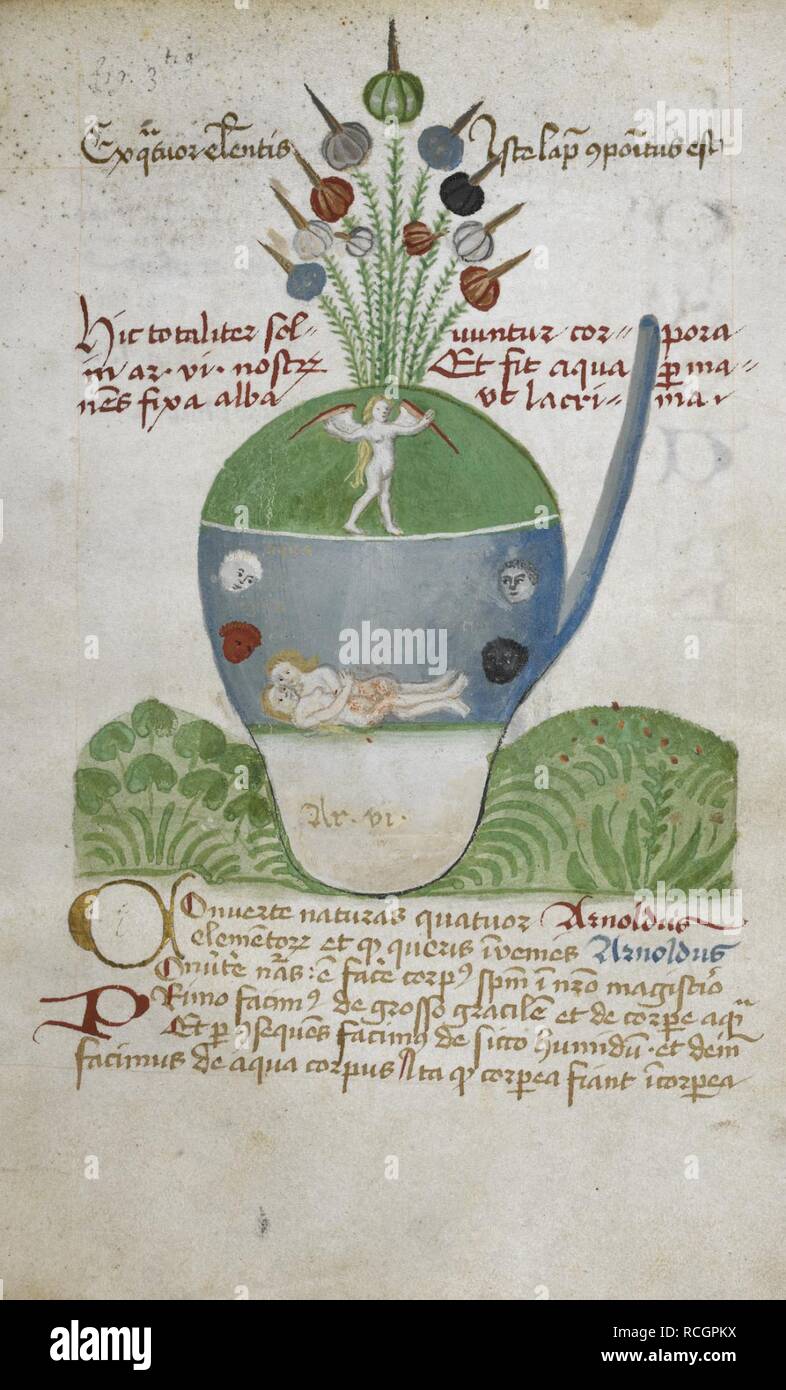 fig. 3tia
Ex qtuor elentis Iste lap 9poitus est
Hic totaliter sol= uuntur cor= pora
in ar · vi · nostr Et fit aqua pma=
nes fixa alba vt lacri= ma ·
Ar · vi ·
Conuerte naturas quatuor Arnoldus
elementor et qd queris inuenies Arnoldus
Cnute nas : e face corp9 spm i nro magisterio
Primo facim9 de grosso gracile et de corpe aqa
Et p 9sequens facim9 de sicco humidu · et dein
facimus de aqua corpus Ita qd corpea fiant icorpea
alamy
Image ID: RCGPKX
www.alamy.com